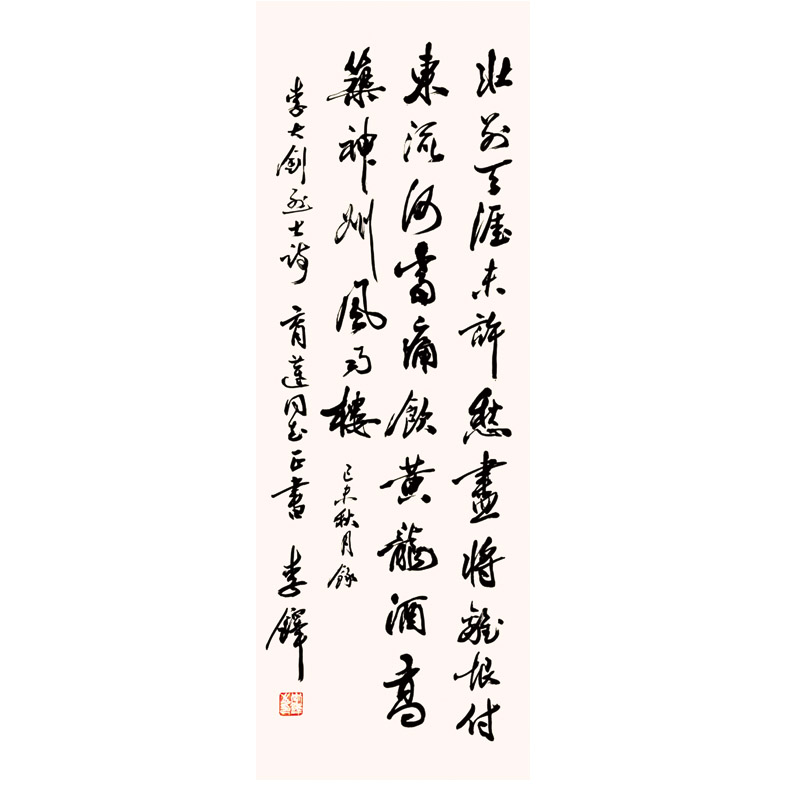 壯別天涯未許愁盡將離恨付
東流何當痛飲黃龍酒高
築神州風雨樓 己未秋月錄
李大釗烈士詩 育蓮同志正書 李鐸